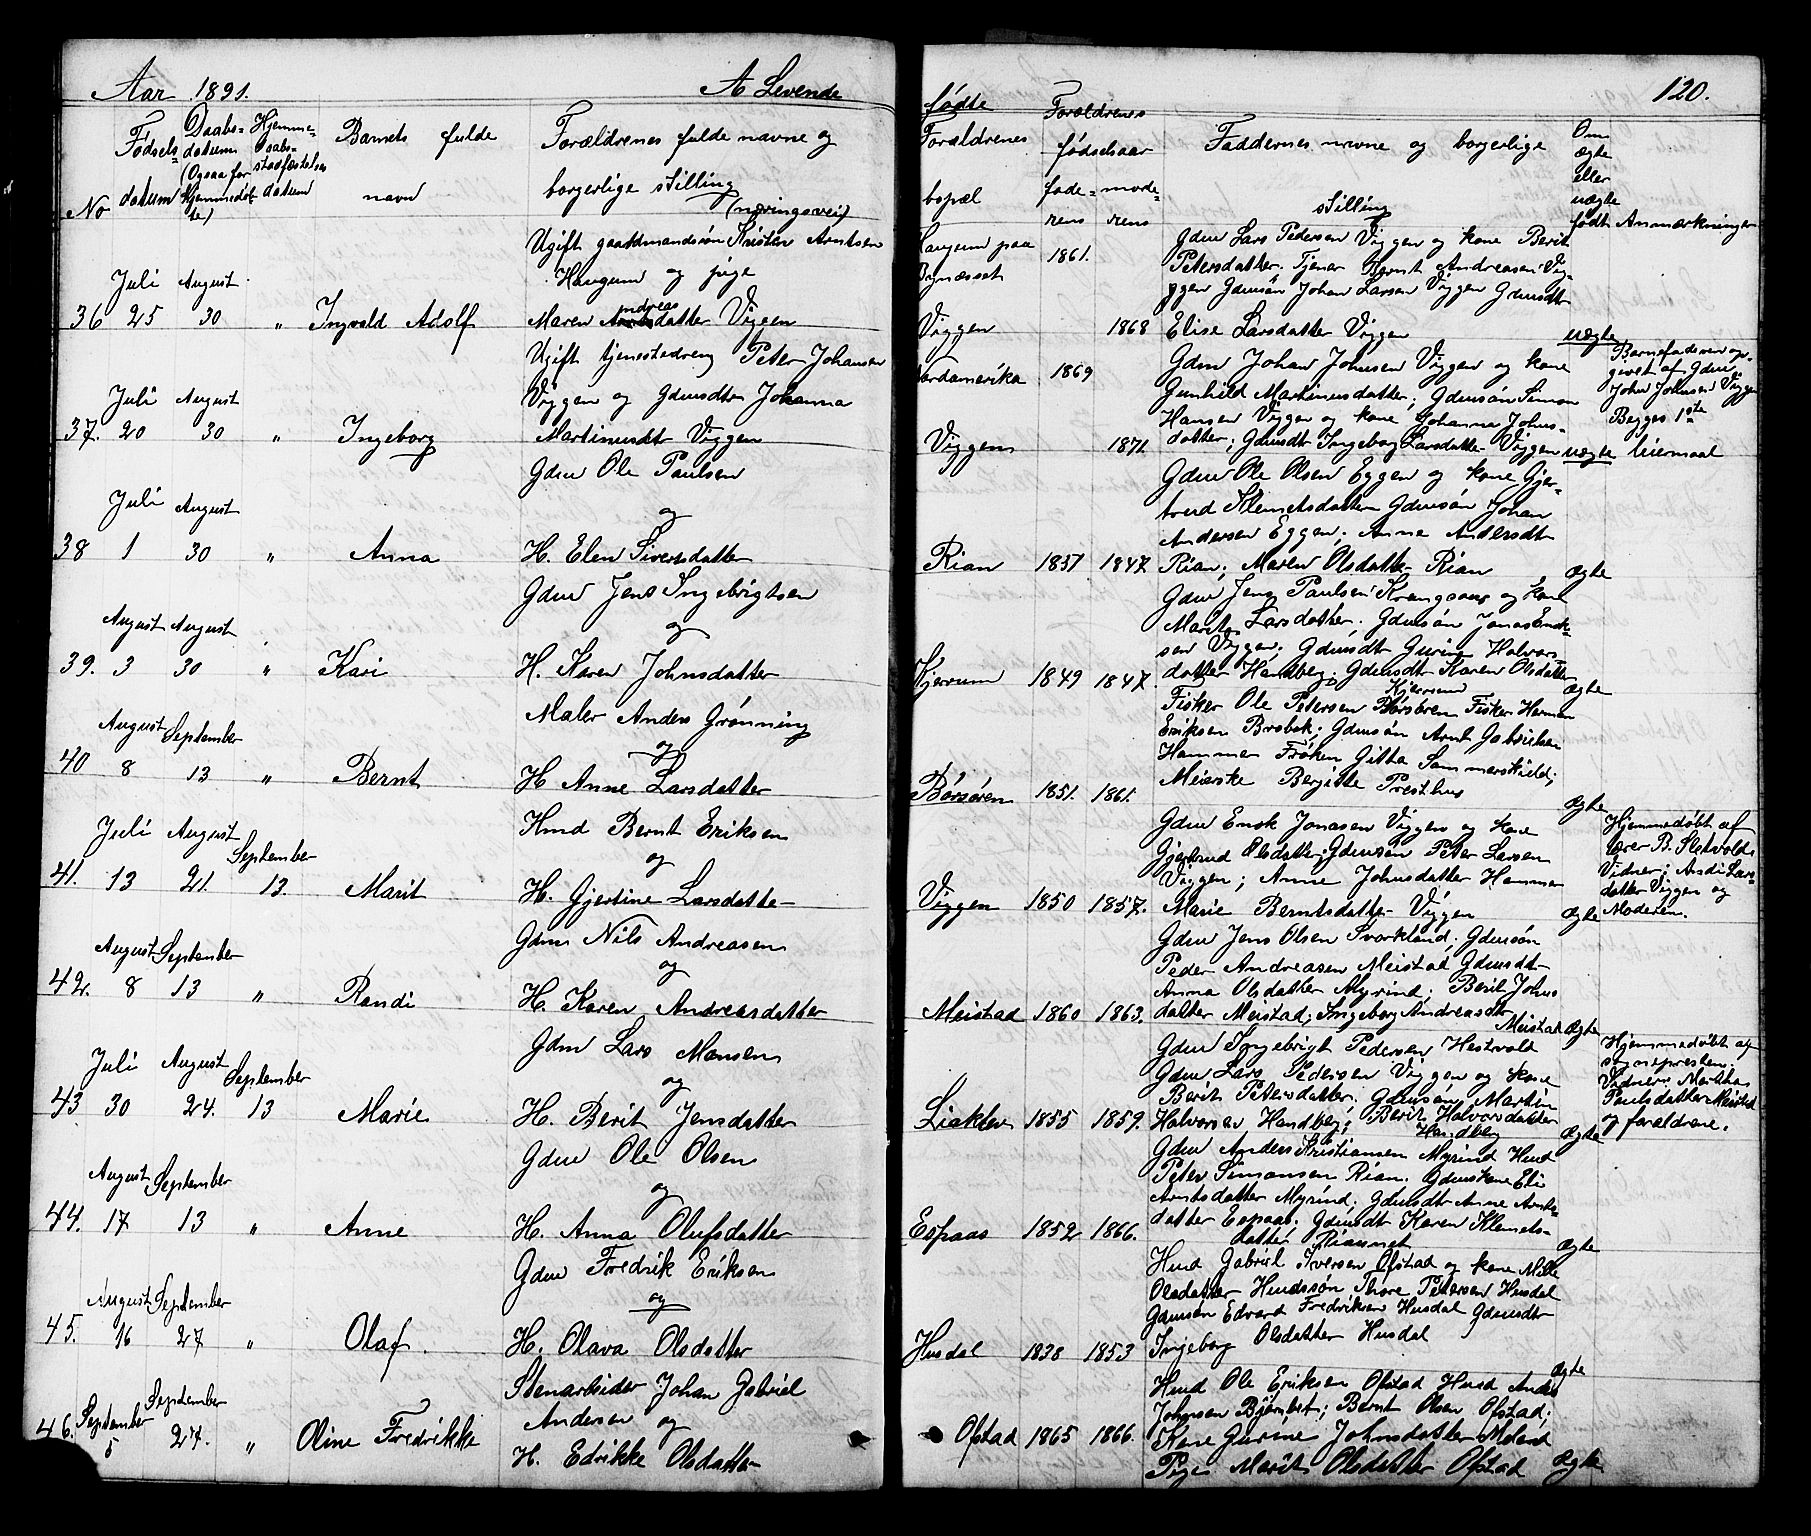 Aar 1891. A Levende
Fødsels-
datum
Daabs-
datum
(Ogsaa for
hjemmedøb-
te)
Hjemme-
daabs-
stadfæstelses
datum
Barnets fulde
navn
Forældrenes fulde navne og
borgerlige stilling
(næringsvei)
No
Ugift gaardmandssøn Kristen Arntsen
Haugum og pige
Juli August
36 25 30 " Ingvald Adolf Maren Andreasdatter Viggen
Ugift tjenestedreng Peter Johansen
Viggen og Gdmdtr Johanna
Juli August
37. 20 30 " Ingeborg Martinusdt Viggen
Gdm Ole Paulsen
Juli August og
38 1 30 " Anna H. Elen Siversdatter
Gdm Jens Ingebrigtsen
August August og
39. 3 30 " Kari H. Karen Johnsdatter
Maler Anders Grønning
August September og
40 8 13 " Bernt H Anne Larsdatter
Hmd Bernt Eriksen
Juli August September og
41. 13 21. 13. Marit H. Gjertine Larsdatter
Gdm Nils Andreasen
August September og
42. 8 13 " Randi H. Karen Andreasdatter
Gdm Lars Monsen
Juli August September og
43 30 24. 13 Marie H. Berit Jensdatter
Gdm Ole Olsen
August September og
44. 17 13 " Anne H. Anna Olufsdatter
Gdm Fredrik Eriksen
August September og
45. 16 27 " Olaf. H. Olava Olsdatter
Stenarbeider Johan Gabriel
September September Andersen og
46. 5 27. " Oline Fredrikke H. Edrikke Olsdatter
120.
fødte
Forældrenes
bopæl
Forældrenes
fødselsaar
fade-
rens
mode-
rens
Faddernes navne og borgerlige
stilling
Om
ægte
eller
uægte
født
Anmærkninger
Haugum paa
Bynæsset 1861.
Gdm Lars Pedersen Viggen og kone Berit
Petersdatter. Tjener Bernt Andreasen Vig-
gen Gdmsøn Johan Larsen Viggen Gdmdt
Viggen 1868 Elise Larsdatter Viggen uægte
Nordamerika 1869
Gdm Johan Johnsen Viggen og kone
Gunhild Martinusdatter; Gdmsøn Simon
Hansen Viggen og kone Johanna Johns-
Viggen 1871. datter; Gdmdt Ingeborg Larsdatter Viggen uægte
Barnefaderen op-
givet af Gdm
John Johnsen Viggen
Begges 1ste
leiermaal
Gdm Ole Olsen Eggen og kone Gjer-
trud Klemetsdatter Gdmsøn Johan
Andersen Eggen; Anne Andersdt
Rian 1857 1847. Rian; Maren Olsdatter Rian ægte
Gdm Jens Paulsen Krangsaas og kone
Marit Larsdatter. Gdmsøn Jonas Enok-
sen Viggen. Gdmdt Gurine Halvors
Kjærum 1849 1847. datter Handberg; Gdmdt Karen Olsdatter
Kjærrum ægte
Fisker Ole Petersen Børsøren Fisker Herman
Eriksen Brebek; Gdmsøn Arnt Gabrielsen
Hammer Frøken Gitta Sommerskield;
Børsøren 1851. 1861. Meierske Bergitte Presthus ægte
Gdm Enok Jonasen Viggen og kone
Gjertrud Olsdatter; Gdmsøn Peter Larsen
Viggen; Anne Johnsdatter Hammer
Viggen 1850 1857. Marie Berntsdatter Viggen ægte
Hjemmedøbt af
lærer B. Sletvold
Vidner; Andi Lars-
datter Viggen og
Moderen.
Gdm Jens Olsen Svorkland; Gdmsøn
Peder Andreasen Meistad Gdmdt
Anna Olsdatter Myrind; Berit Johns
Meistad 1860 1863. datter Meistad; Ingeborg Andreasdt
Meistad ægte
Gdm Ingebrigt Pedersen Hestvold
Gdm Lars Pedersen Viggen og kone
Berit Petersdatter; Gdmsøn Martin
Liaklev 1855 1859. Halvorsen Handberg; Berit Halvorsdatter
Handberg ægte
Hjemmedøbt af
sognepresten.
Vidner: Martha
Paulsdatter Meistad
og forældrene.
Gdm Anders Kristiansen Myrind Hmd
Peter Simonsen Rian. Gdmkone Eli
Arntsdatter Myrind; Gdmdt Anne Arnts-
Espaas 1852 1866. datter Espaas. Gdmdt Karen Klemets-
datter Riaunet ægte
Hmd Gabriel Iversen Ofstad og kone Mille
Olsdatter Hmdssøn Thore Petersen Husdal
Gdmsøn Edvard Fredriksen Husdal Gdmdt
Husdal 1838 1853 Ingeborg Olsdatter Husdal
ægte
Hmd Ole Eriksen Ofstad Hmd Anders
Johnsen Bjørnbet; Bernt Olsen Ofstad;
Ofstad 1865 1866. Kone Gurine Johnsdatter Meland
Pige Marit Olsdatter Ofstad ægte